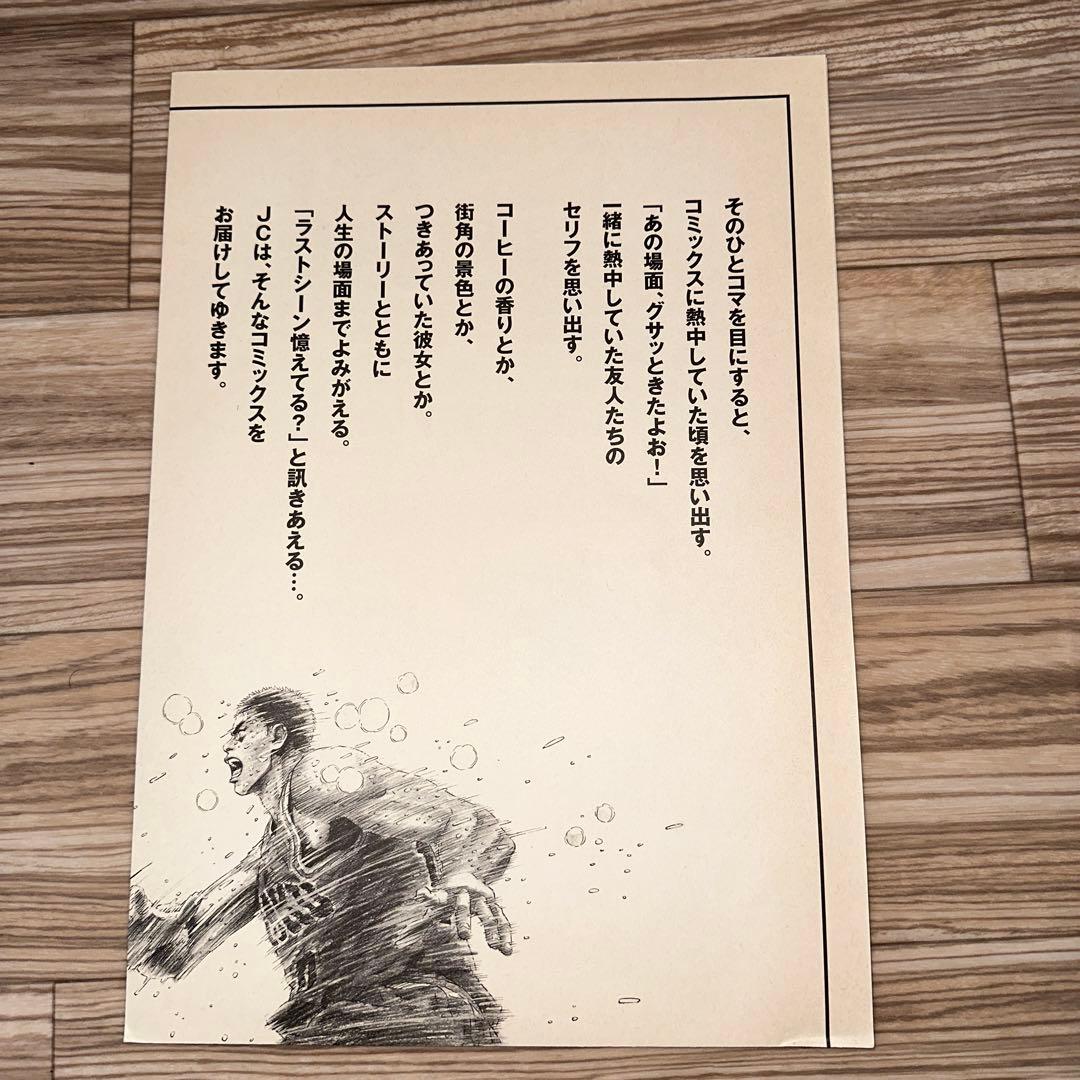 そのひとコマを目にすると、
コミックスに熱中していた頃を思い出す。
「あの場面、グサッときたよお！」
一緒に熱中していた友人たちの
セリフを思い出す。
コーヒーの香りとか、
街角の景色とか、
つきあっていた彼女とか。
ストーリーとともに
人生の場面までよみがえる。
「ラストシーン憶えてる？」と訊きあえる…。
JCは、そんなコミックスを
お届けしてゆきます。